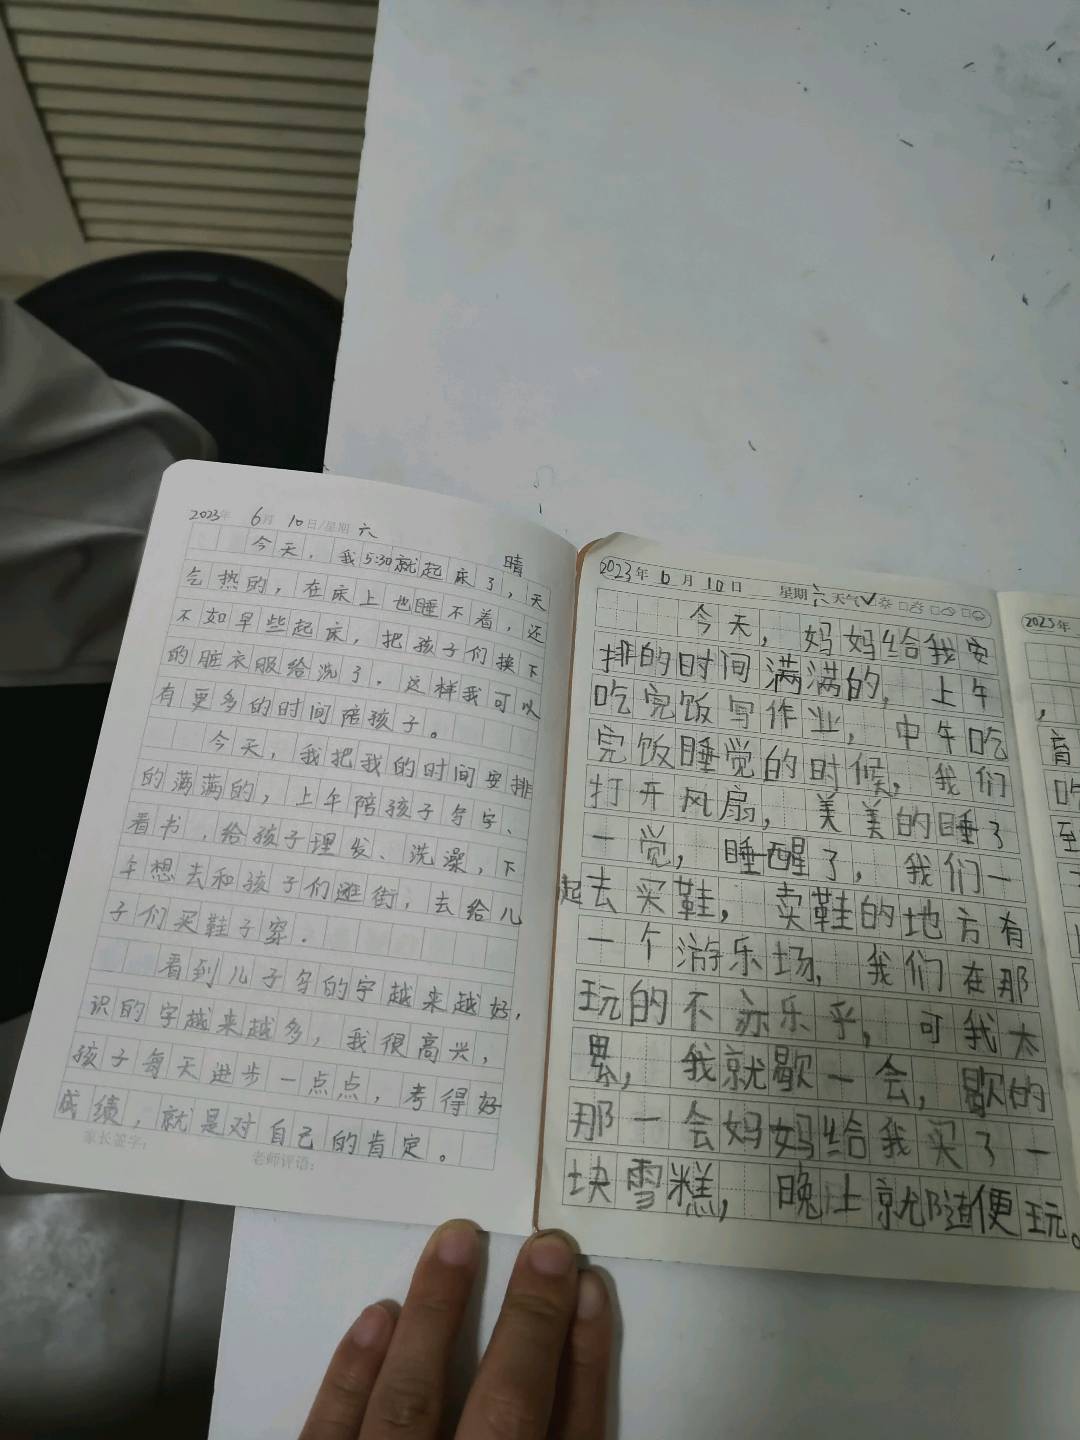 2023年 6月 10日/星期 六
晴
今天，我5:30就起床了，天
气热的，在床上也睡不着，还
不如早些起床，把孩子们换下
的脏衣服给洗了。这样我可以
有更多的时间陪孩子。
今天，我把我的时间安排
的满满的，上午陪孩子写字、
看书、给孩子理发、洗澡，下
午想去和孩子们逛街，去给儿
子们买鞋子穿.
看到儿子写的字越来越好，
识的字越来越多，我很高兴，
孩子每天进步一点点，考得好
成绩，就是对自己的肯定。
家长签字：
老师评语：
2023年 6月 10日 星期六 天气
今天，妈妈给我安
排的时间满满的，上午
吃完饭写作业，中午吃
完饭睡觉的时候，我们
打开风扇，美美的睡了
一觉，睡醒了，我们一
起去买鞋，卖鞋的地方有
一个游乐场，我们在那
玩的不亦乐乎，可我太
累，我就歇一会，歇的
那一会妈妈给我买了一
块雪糕，晚上就随便玩。
2023年